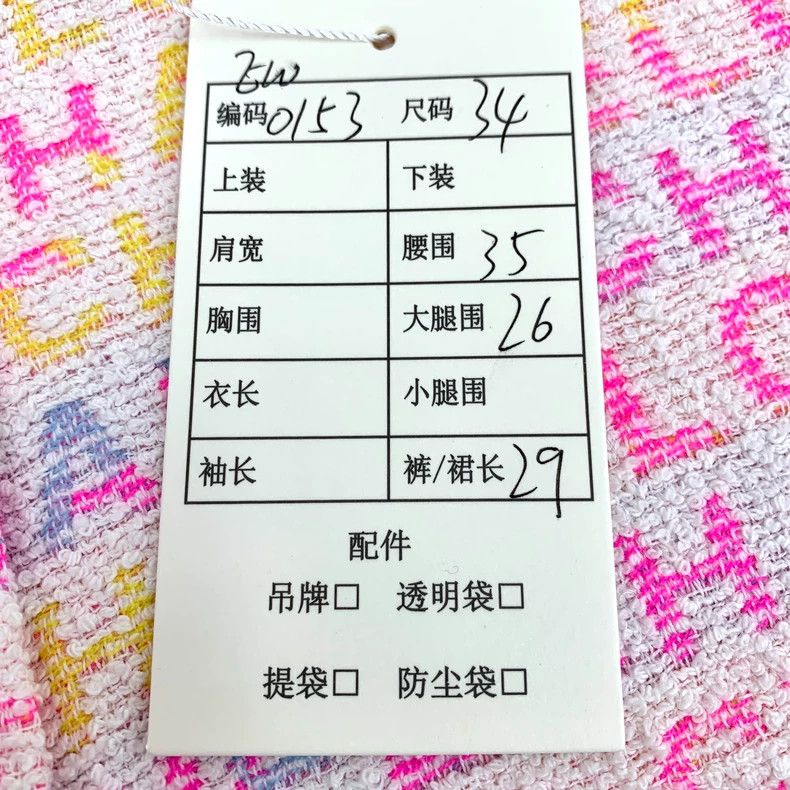 编码0153 尺码 34
上装 下装
肩宽 腰围 35
胸围 大腿围 26
衣长 小腿围
袖长 裤/裙长 29
配件
吊牌□ 透明袋□
提袋□ 防尘袋□